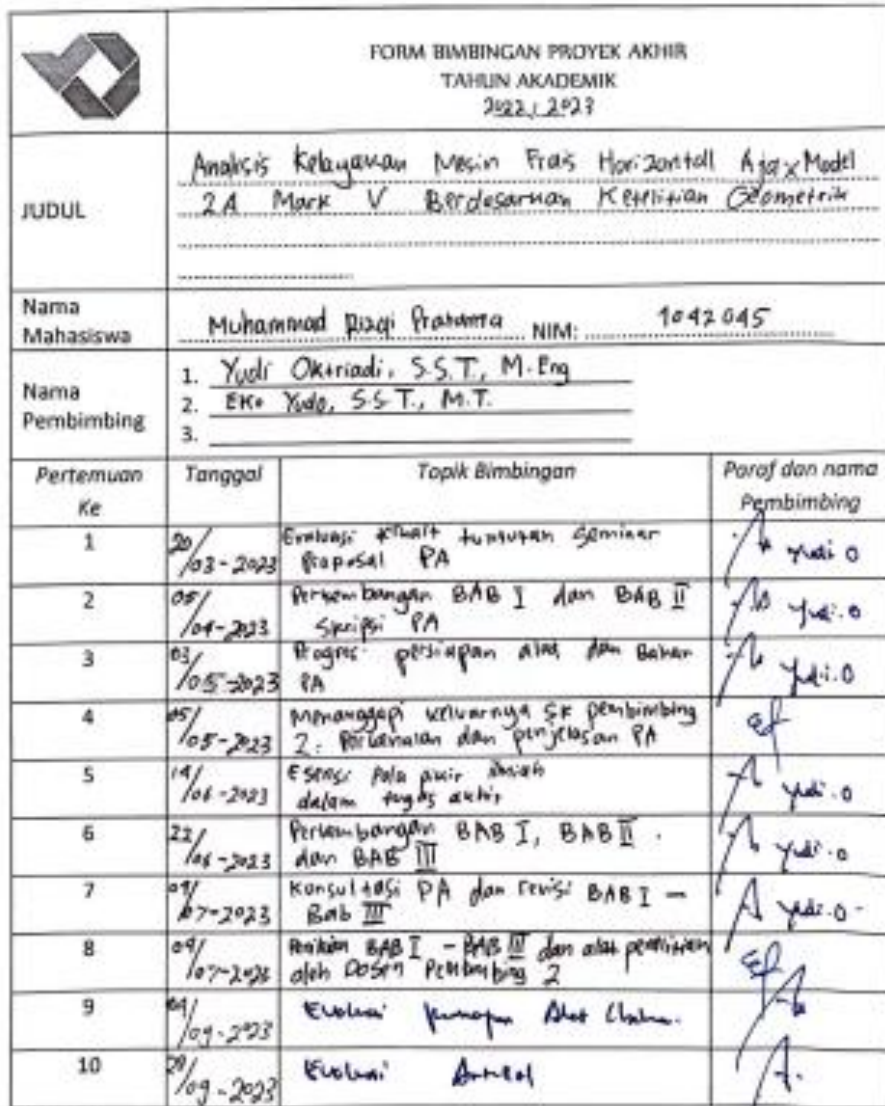 FORM BIMBINGAN PROYEK AKHIR
TAHUN AKADEMIK
2022 / 2023
JUDUL
Analisis Kelayakan Mesin Frais Horizontall Ajax Model
2A Mark V Berdasarkan Ketelitian Geometrik
Nama
Mahasiswa
Muhammad Rizqi Pratama NIM: 1042045
Nama
Pembimbing
1. Yudi Oktriadi, S.S.T., M.Eng
2. Eko Yudo, S.S.T., M.T.
3.
Pertemuan Ke
Tanggal
Topik Bimbingan
Paraf dan nama Pembimbing
1
20/03-2023
Evaluasi tuntutan seminar
Proposal PA
Yudi O
2
05/04-2023
Perkembangan BAB I dan BAB II
Skripsi PA
Yudi.O
3
03/05-2023
Progres persiapan alat dan Bahan
PA
Yudi.O
4
05/05-2023
Menanggapi keluarnya SK pembimbing
2. Perkenalan dan penjelasan PA
5
14/06-2023
Esensi Pola pikir ilmiah
dalam tugas akhir
Yudi.O
6
22/06-2023
Perkembangan BAB I, BAB II
dan BAB III
Yudi.O
7
/07-2023
Konsultasi PA dan revisi BAB I -
Bab III
Yudi.O
8
09/07-2023
BAB I - BAB III dan alat penelitian
oleh Dosen Pembimbing 2
9
/09-2023
Evaluasi
10
/09-2023
Evaluasi